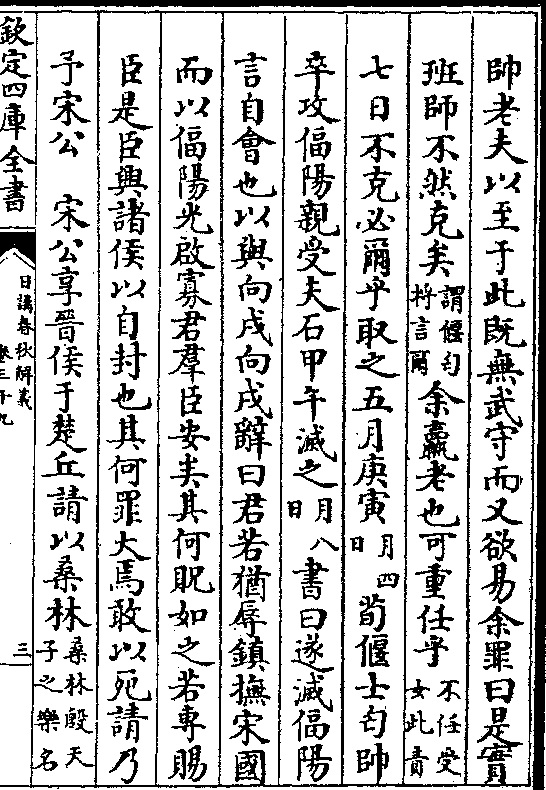 帥老夫以至于此既無武守而又欲易余罪曰是實
班師不然克矣謂偃匄將言爾余羸老也可重任乎不任受女此責
七日不克必爾乎取之五月庚寅月四日荀偃士匄帥
卒攻偪陽親受矢石甲午滅之月八日書曰遂滅偪陽
言自會也以與向戌向戌辭曰君若猶辱鎮撫宋國
而以偪陽光啟寡君羣臣安矣其何貺如之若專賜
臣是臣興諸侯以自封也其何罪大焉敢以死請乃
予宋公　宋公享晉侯于楚丘請以桑林桑林殷天子之樂名
欽定四庫全書
日講春秋解義
卷三十九
三